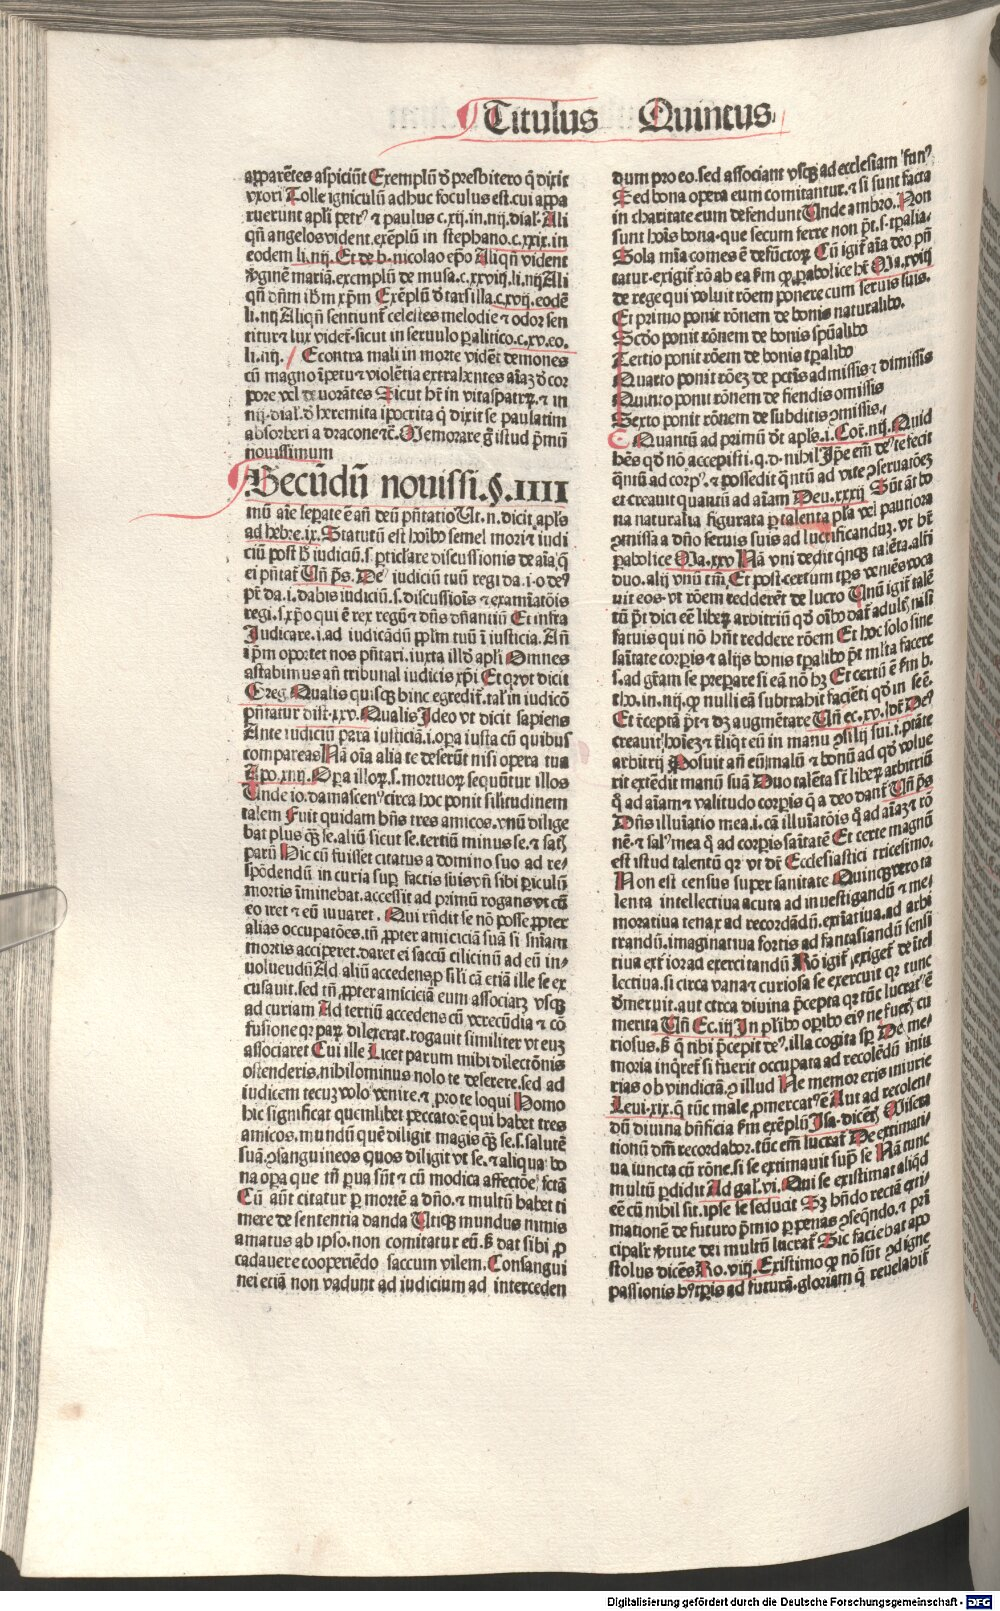 Titulus Quintus
apparētes aspiciūt Exemplū ď presbitero q̄ dixit
vxori Tolle igniculū adhuc foculus est.cui appa
ruerunt apli petrꝰ ⁊ paulus c.xij.in.iiij.dial. Ali
qn̄ angelos vident.exēplū in stephano.c.xxix.in
eodem li.iiij. Et de b.nicolao ep̄o Aliqn̄ vident
v̓ginē mariā.exemplū de musa.c.xxviij.li.iiij Ali
qn̄ dn̄m ihm xp̄m Exēplū ď tarsilla.c.xvij.eodē
li.iiij Aliqn̄ sentiunt celestes melodie ⁊ odor sen
titur ⁊ lux videt.sicut in seruulo palitico.c.xv.eo.
li.iiij. Econtra mali in morte vidēt demones
cū magno īpetu ⁊ violētia extrahentes aīaz ď cor
pore vel deuorātes Sicut hr̄ in vitaspatrꝝ.⁊ in
iiij.dial.ď heremita ipocrita q̄ dixit se paulatim
absorberi a dracone ⁊c̄. Memorare g̊ istud pͥmū
nouissimum
Secūdū nouissi.§.IIII
mū aīe sepate ē an̄ deū pn̄tatio Vt.n.dicit apl̓s
ad hebre.ix. Statutū est hoībꝰ semel mori ⁊ iudi
ciū post h̓ iudiciū.s.pticlare discussionis de aīa q̄
ei pn̄tat Vn̄ ps̄. Deꝰ iudiciū tuū regi da.i.o deꝰ
pr̄ da.i.dabis iudiciū.s.discussiois ⁊ examīatōis
regi.s.xp̄o qui ē rex regū ⁊ dn̄s dn̄antiū Et infra
Judicare.i.ad iudicādū pplm̄ tuū ī iusticia. An̄
ip̄m oportet nos pn̄tari.iuxta illď apli Omnes
astabimus an̄ tribunal iudicis xp̄i Et qr̄ vt dicit
Greg. Qualis quisqꝫ hinc egredit̄.tal̓ in iudicō
pn̄tatur dist.xxv. Qualis Ideo vt dicit sapiens
Ante iudiciū para iusticiā.i.opa iusta cū quibus
compareas Nā oīa alia te deserūt nisi opera tua
Apo.xiiij. Opa illoꝝ.s.mortuoꝝ sequūtur illos
Unde io.damascenꝰ circa hoc ponit silitudinem
talem Fuit quidam hn̄s tres amicos.vnū dilige
bat plus qꝫ se.aliū sicut se.tertiū minus se.⁊ satꝫ
parū Hic cū fuisset citatus a domino suo ad re-
spōdendū in curia sup factis suis vn̄ sibi piculū
mortis īminebat.accessit ad primū rogans vt cū
eo iret ⁊ eū iuuaret. Qui rn̄dit se nō posse ꝓpter
alias occupatōes.tn̄ ꝓpter amiciciā suā si sn̄iam
mortis acciperet.daret ei saccū cilicinū ad eū in-
uoluendū Ad aliū accedens ꝓ sil̓i cā etiā ille se ex
cusauit.sed tn̄ ꝓpter amiciciā eum associarꝫ vsqꝫ
ad curiam Ad tertiū accedens cū verecūdia ⁊ cō
fusione qr̄ parꝫ dilexerat.rogauit similiter vt euꝫ
associaret Cui ille Licet parum mihi dilectōnis
ostenderis.nihilominus nolo te deserere.sed ad
iudicem tecuꝫ volo venire.⁊ pro te loqui Homo
hic significat quemlibet peccatorē qui habet tres
amicos.mundū quē diligit magis qꝫ se.s.salutē
suā ꝯsanguineos quos diligit vt se.⁊ aliqua bo
na opa que tn̄ pua sūt ⁊ cū modica affectōe fctā
Cū aūt citatur p mortē a dn̄o.⁊ multū habet ti
mere de sententia danda Utiqꝫ mundus nimis
amatus ab ipso.non comitatur eū.s̓ dat sibi ꝓ
cadauere cooperiēdo saccum vilem. Consangui
nei eciā non vadunt ad iudicium ad interceden
dum pro eo.sed associant vsqꝫ ad ecclesiam funꝰ
Sed bona opera eum comitantur.⁊ si sunt facta
in charitate eum defendunt Unde ambro. Non
sunt hoīs bona.que secum ferre non pt̄.s.tpalia.
Sola mīa comes ē defūctoꝝ Cū igit̄ aīa deo pn̄
tatur.exigit̄ rō ab ea fm̄ qꝫ pabolice hr̄ Ma.xviij
de rege qui voluit rōem ponere cum seruis suis.
Et primo ponit rōnem de bonis naturalibꝰ.
Scďo ponit rōnem de bonis spūalibꝰ
Tertio ponit rōem de bonis tpalibꝰ
Quarto ponit rōeꝫ de pctīs admissis ⁊ dimissis
Quinto ponit rōnem de fiendis omissis
Sexto ponit rōnem de subditis ꝯmissis.
Quantū ad primū ďt apl̓s.i.Cor̄.iiij. Quid
hēs qď nō accepisti.q.d.nihil Ip̄e em̄ deꝰ te fecit
q̄ntū ad corpꝰ.⁊ possedit q̄ntū ad vite ꝯseruatōeꝫ
et creauit quantū ad aīam Deu.xxxij Sūt āt bo
na naturalia figurata p talenta pl̓a vel pauciora
ꝯmissa a dn̄o seruis suis ad lucrificanduꝫ.vt hr̄
pabolice Ma.xxv Nā vni dedit qnqꝫ talēta.alij
duo.alij vnū tm̄. Et post certum tps veniēs voca
uit eos.vt rōem redderēt de lucro Unū igit̄ talē
tū pt̄ dici eē liberꝫ arbitriū qď oībꝰ dat̄ adulꝰ.nisi
fatuis qui nō hn̄t reddere rōem Et hoc solo sine
saītate corpis ⁊ alijs bonis tpalibꝰ pt̄ ml̓ta facere
s.ad gr̄am se prepare si eā nō hꝫ Et certū ē fm̄ b.
tho.in.iiij.qꝫ nulli eā subtrahit faciēti qď in se ē.
Et īceptā pt̄ ⁊ dꝫ augmētare Vn̄ ec.xv.hr̄ Deꝰ
creauit hoīeꝫ ⁊ reliqt̄ eū in manu ꝯsilij sui.i.ptāte
arbitrij Posuit an̄ eū malū ⁊ bonū ad qď volue
rit extēdit manū suā Duo talēta s̓t liberꝫ arbitriū
q̊ ad aīam ⁊ valitudo corpis q̄ a deo dant̄ Vn̄ ps̄
Dn̄s illuīatio mea.i.cā illuīatōis q̊ ad aīaꝫ ⁊ rō
nē.⁊ salꝰ mea q̊ ad corpis saītatē Et certe magnū
est istud talentū qr̄ vt dr̄ Ecclesiastici tricesimo.
Non est census super sanitate Quinqꝫ vero ta
lenta intellectiua acuta ad inuestigandū ⁊ me-
moratiua tenax ad recordādū.extīatiua.ad arbi
trandū.imaginatiua fortis ad fantasiandū sensi
tiua ext̓ior ad exercitandū Rō igit̄ exiget̄ de ītel
lectiua.si circa vana ⁊ curiosa se exercuit qr̄ tunc
ďmeruit.aut circa diuina p̄cepta qr̄ tūc lucrat̄ ē
merita Vn̄ Ec.iij In plībꝰ opībꝰ eiꝰ ne fueꝭ cu
riosus.s̓ q̄ tibi p̄cepit deꝰ.illa cogita sp̄ De me-
moria inqret̄ si fuerit occupata ad recolēdū iniu
rias ob vindictā.ꝯ illud Ne memor eris iniurie
Leui.xix.q̄ tūc male ꝓmercatꝰ ē Aut ad recolen-
dū diuina bn̄ficia fm̄ exēplū Isa.dicēꝭ Misera
tionū dn̄i recordabor.tūc em̄ lucrat̄ De extimati-
ua iuncta cū rōne.si se extimauit supͣ se Nā tunc
multū pdidit Ad gal̓.vi. Qui se existimat aliqd
eē cū nihil sit.ipse se seducit Aꝫ hn̄do rectā exti-
mationē de futuro p̄mio p penas ꝯseqndo.⁊ pri
cipalr̄ v̓tute dei multū lucrat̄ Sic faciebat apo
stolus dicēs Ro.viij. Existimo qꝫ nō sūt ꝯdigne
passionis hꝰ tpis ad futurā.gloriam q̄ reuelabit̄
Digitalisierung gefördert durch die Deutsche Forschungsgemeinschaft - DFG